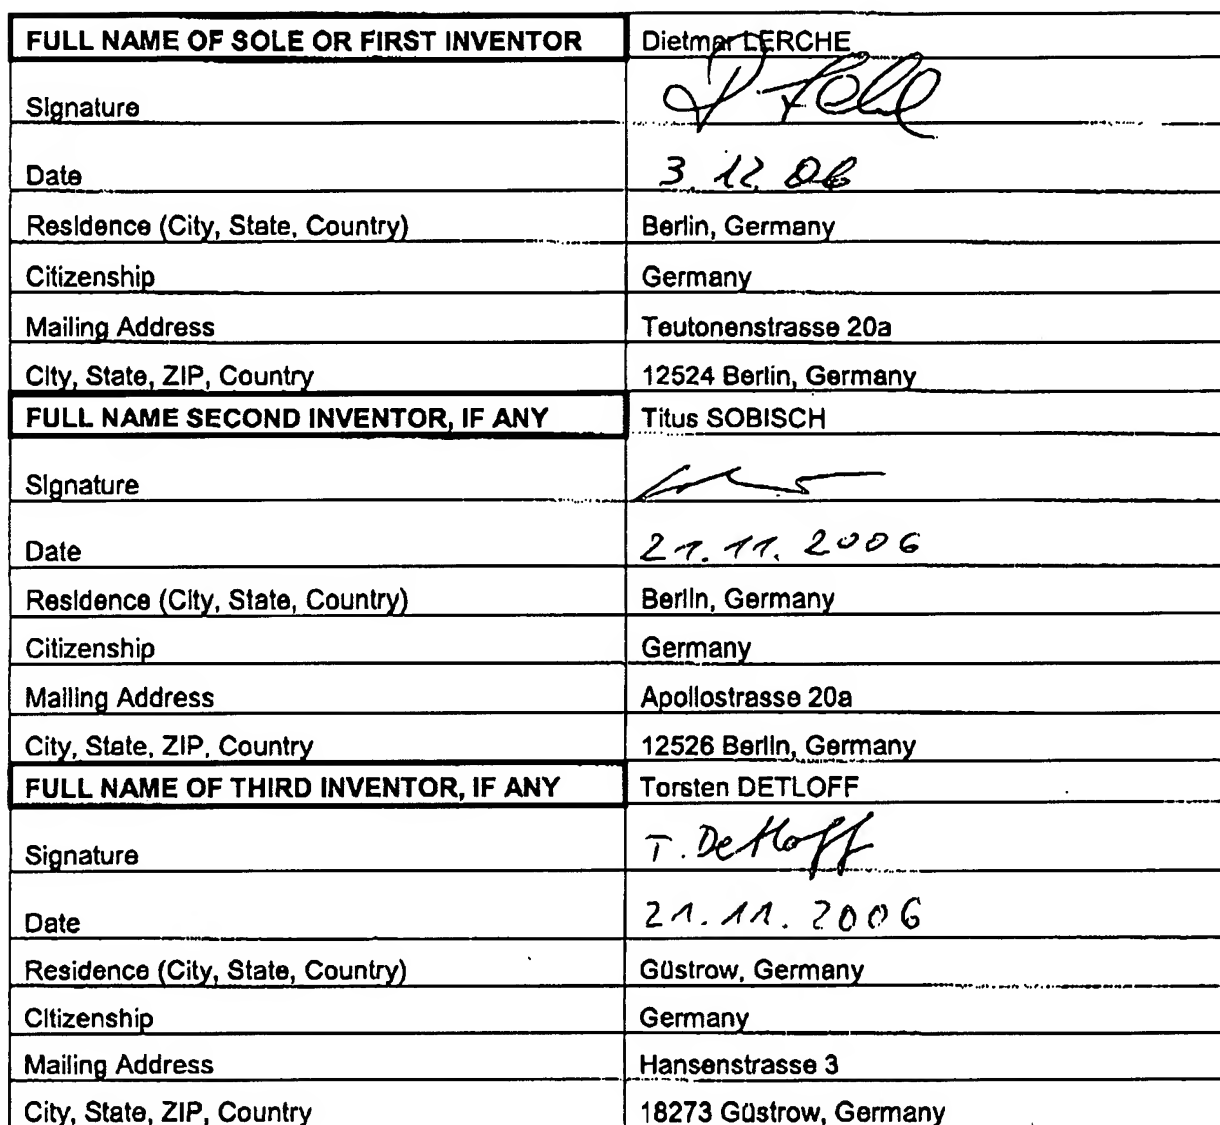 FULL NAME OF SOLE OR FIRST INVENTOR Dietmar LERCHE
Signature
Date 3. 12. 06
Residence (City, State, Country) Berlin, Germany
Citizenship Germany
Mailing Address Teutonenstrasse 20a
City, State, ZIP, Country 12524 Berlin, Germany
FULL NAME SECOND INVENTOR, IF ANY Titus SOBISCH
Signature
Date 21.11.2006
Residence (City, State, Country) Berlin, Germany
Citizenship Germany
Mailing Address Apollostrasse 20a
City, State, ZIP, Country 12526 Berlin, Germany
FULL NAME OF THIRD INVENTOR, IF ANY Torsten DETLOFF
Signature T. Detloff
Date 21.11.2006
Residence (City, State, Country) Güstrow, Germany
Citizenship Germany
Mailing Address Hansenstrasse 3
City, State, ZIP, Country 18273 Güstrow, Germany